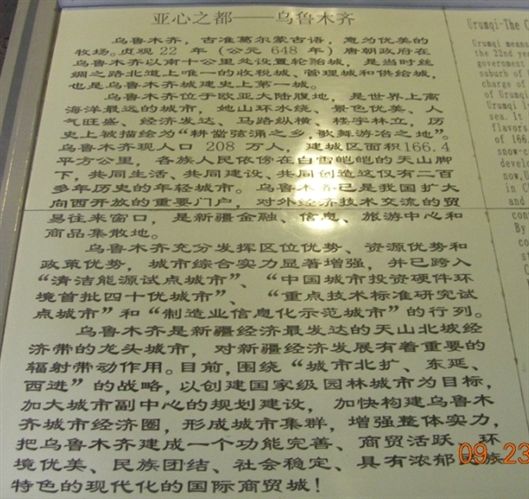 亚心之都——乌鲁木齐
乌鲁木齐，古准葛尔蒙古语，意为优美的
牧场。贞观 22 年（公元 648 年）唐朝政府在
乌鲁木齐以南十公里处设置轮胎城，是当时丝
绸之路北道上唯一的收税城、管理城和供给城，
也是乌鲁木齐城建史上第一城。
乌鲁木齐位于欧亚大陆腹地，是世界上离
海洋最远的城市，她山环水绕、景色优美、人
气旺盛、经济发达、马路纵横、楼宇林立，历
史上被描绘为“耕凿弦诵之乡，歌舞游冶之地”。
乌鲁木齐现人口 208 万人，建城区面积166.4
平方公里，各族人民依傍在白雪皑皑的天山脚
下，共同生活、共同建设、共同创造这仅有二百
多年历史的年轻城市。乌鲁木齐已是我国扩大
向西开放的重要门户，对外经济技术交流的贸
易往来窗口，是新疆金融、信息、旅游中心和
商品集散地。
乌鲁木齐充分发挥区位优势、资源优势和
政策优势，城市综合实力显著增强，并已跨入
“清洁能源试点城市”、“中国城市投资硬件环
境首批四十优城市”、“重点技术标准研究试
点城市”和“制造业信息化示范城市”的行列。
乌鲁木齐是新疆经济最发达的天山北坡经
济带的龙头城市，对新疆经济发展有着重要的
辐射带动作用。目前，围绕“城市北扩、东延、
西进”的战略，以创建国家级园林城市为目标，
加大城市副中心的规划建设，加快构建乌鲁木
齐城市经济圈，形成城市集群，增强整体实力，
把乌鲁木齐建成一个功能完善、商贸活跃、环
境优美、民族团结、社会稳定、具有浓郁民族
特色的现代化的国际商贸城！
Urumqi-The C
Urumqi means
the 22nd year
government
suburb of
charge of
of Urumqi
Urumqi i
sea. It
flavor
of 166.
snow-c
develo
now,U
in t
and
con
By
co
st
09.23